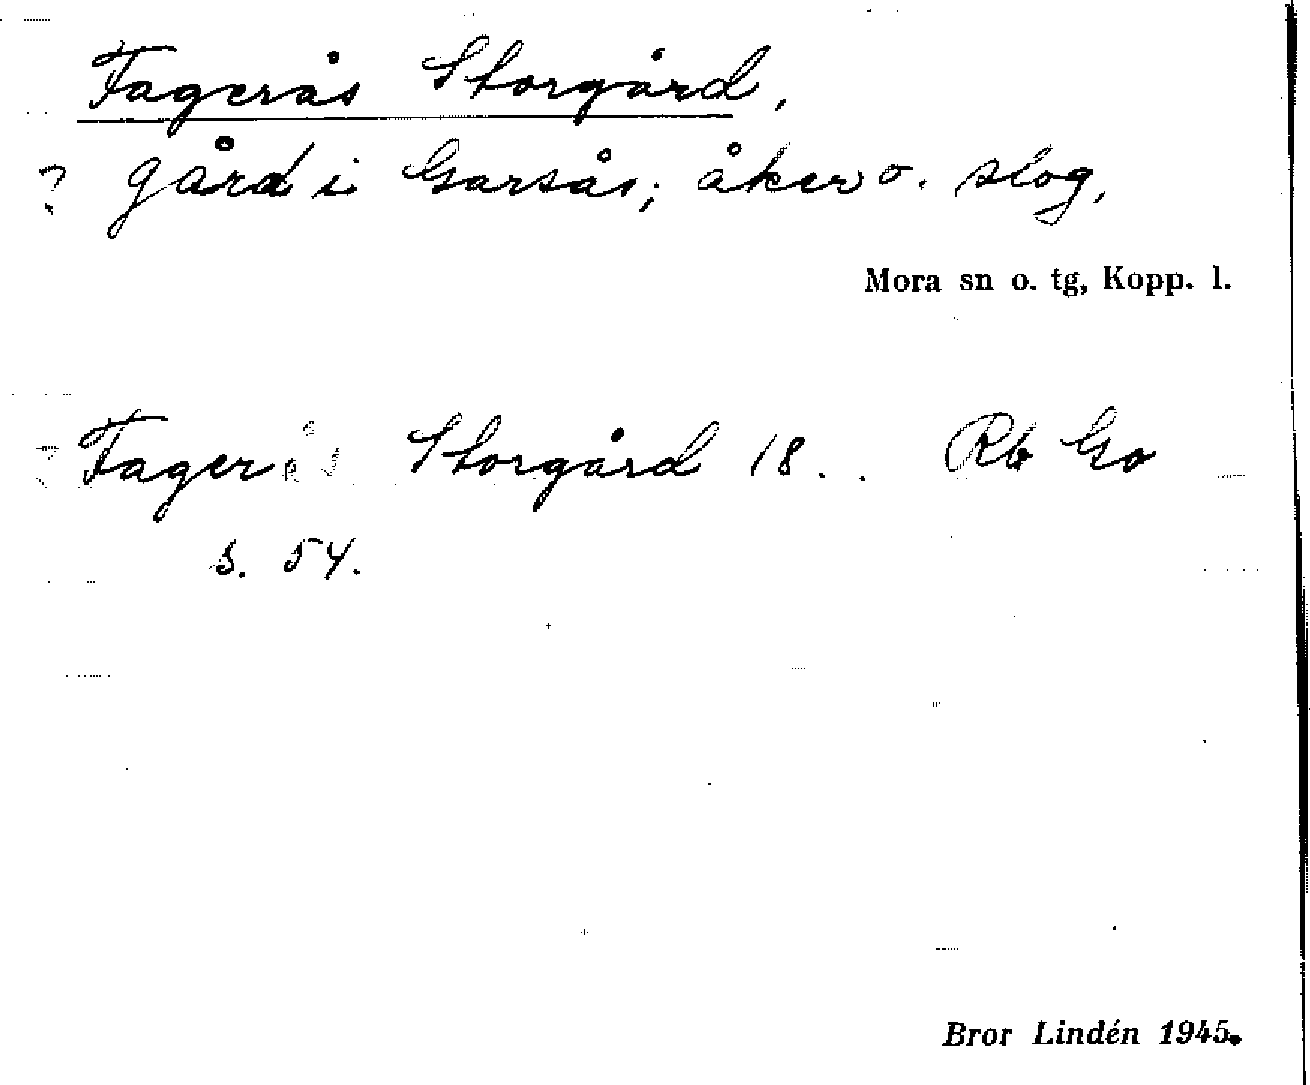 Fagerås Storgård,
? gård i Garsås; åker o. slog,
Mora sn o. tg, Kopp. l.
? Fagerås Storgård 18 . . Rb Go
s. 54.
Bror Lindén 1945.